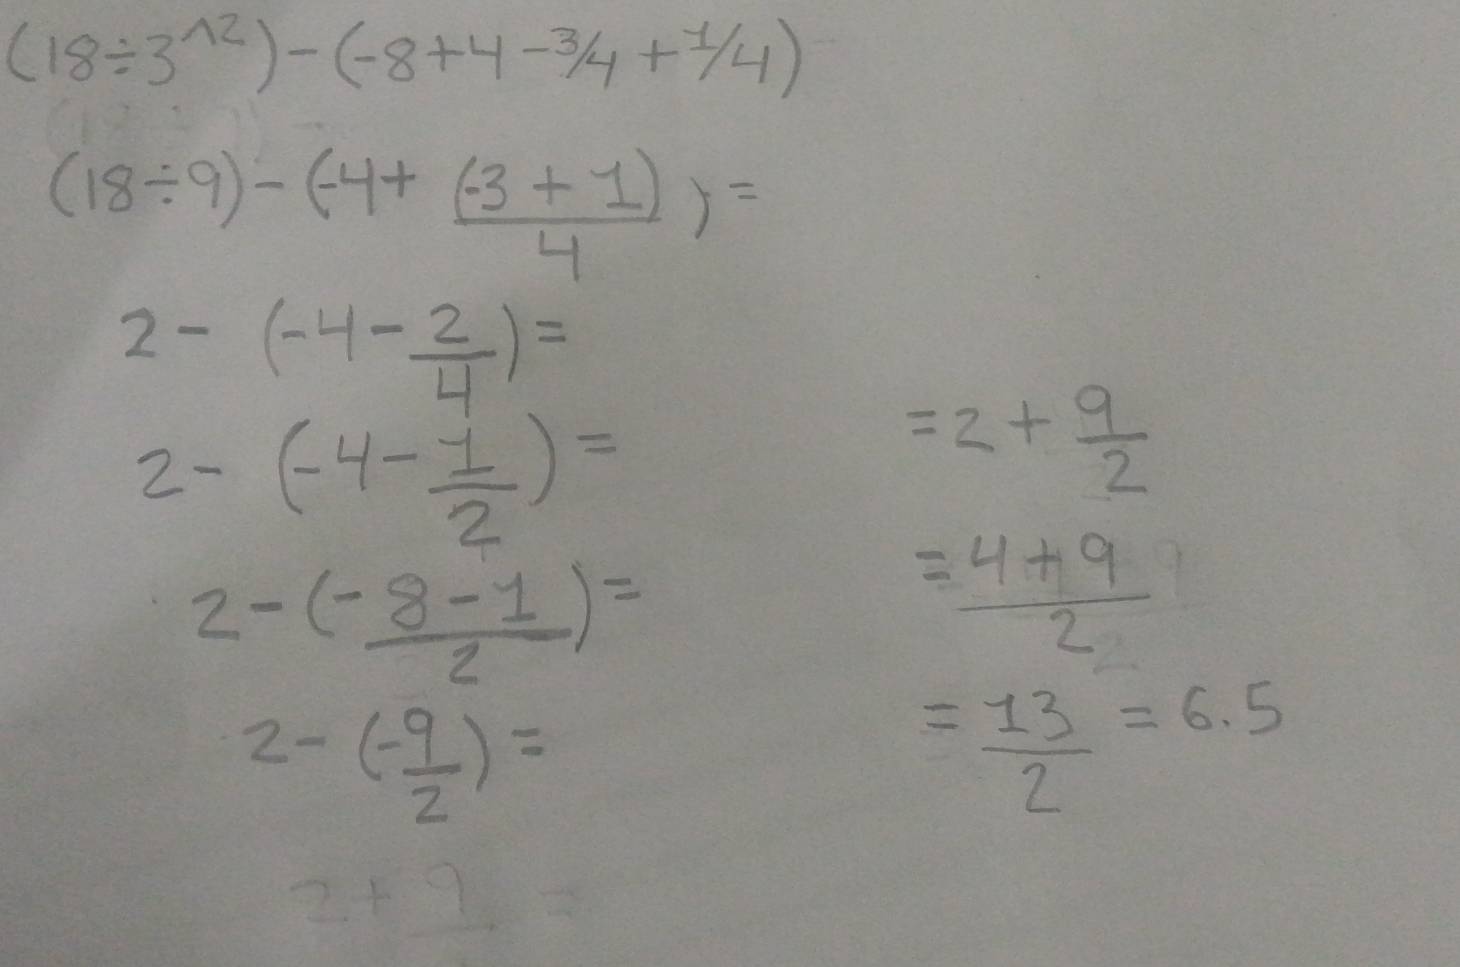 (18÷3^2)-(-8+4-3/4+1/4)
(18÷9)-(-4+(-3+1)/4)=
2-(-4-2/4)=
2-(-4-1/2)=
2-(-8-1/2)=
2-(-9/2)=
2+9 =
=2+9/2
=4+9/2
=13/2=6.5